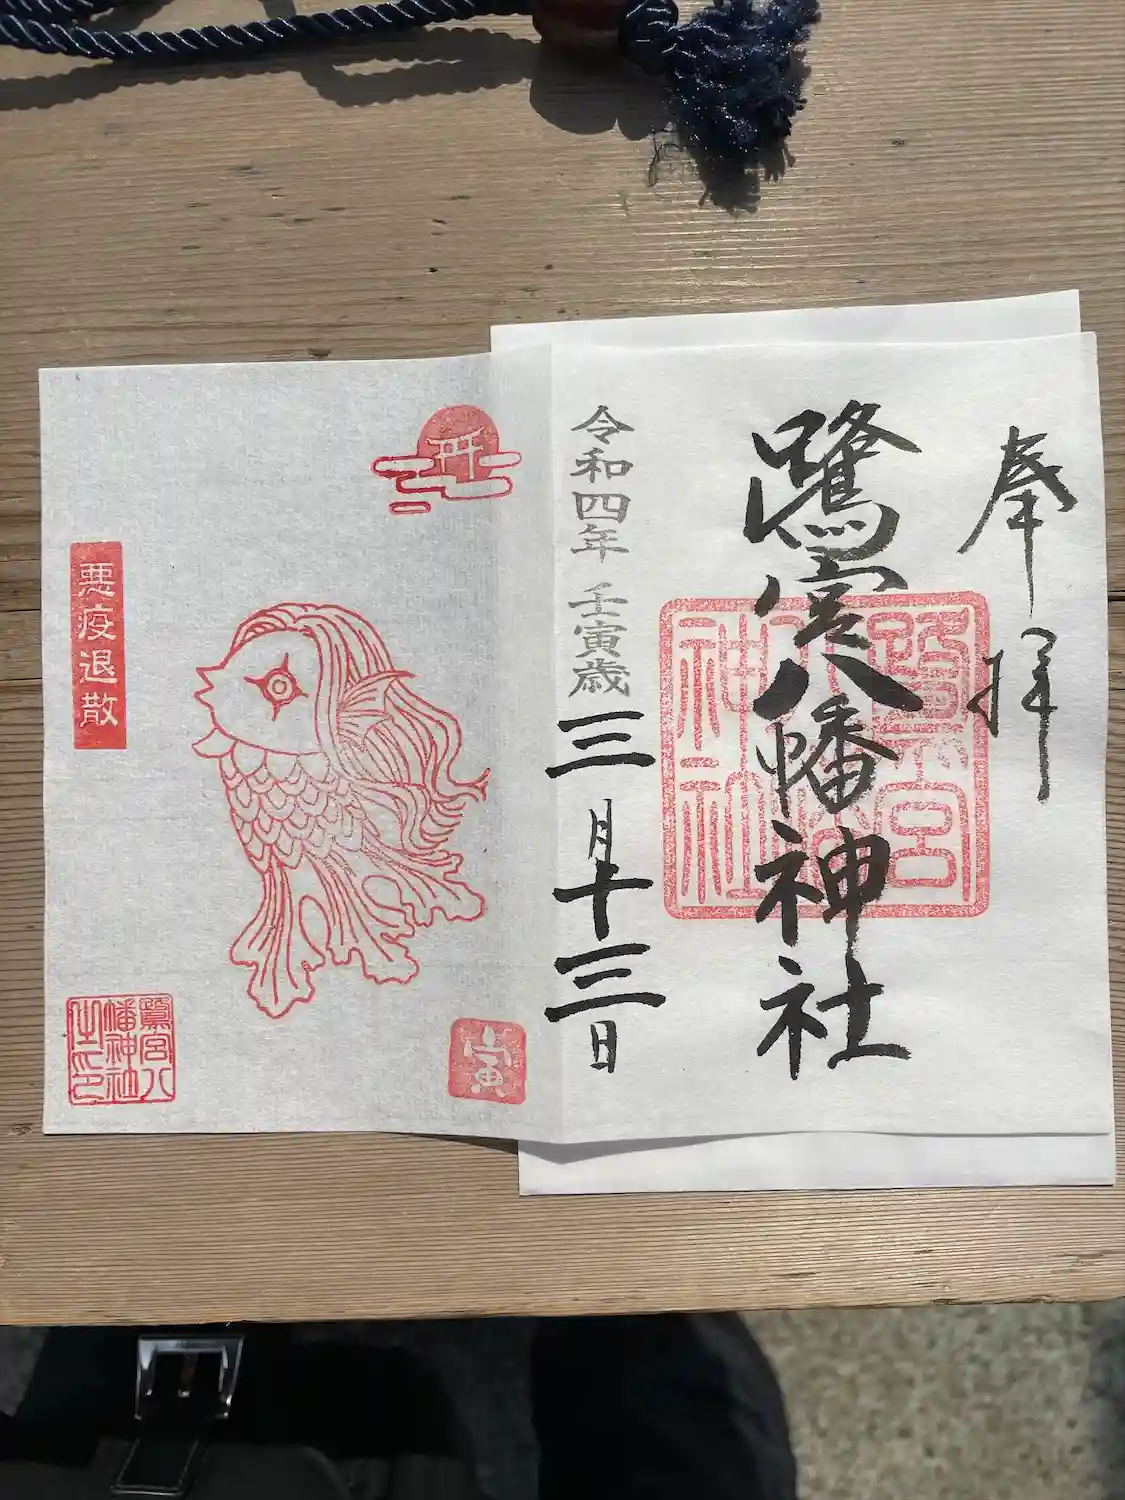 奉拝
鷺宮八幡神社
鷺宮
神社
令和四年 壬寅歳 三月十三日
寅
悪疫退散
鷺宮八
幡神社
之印